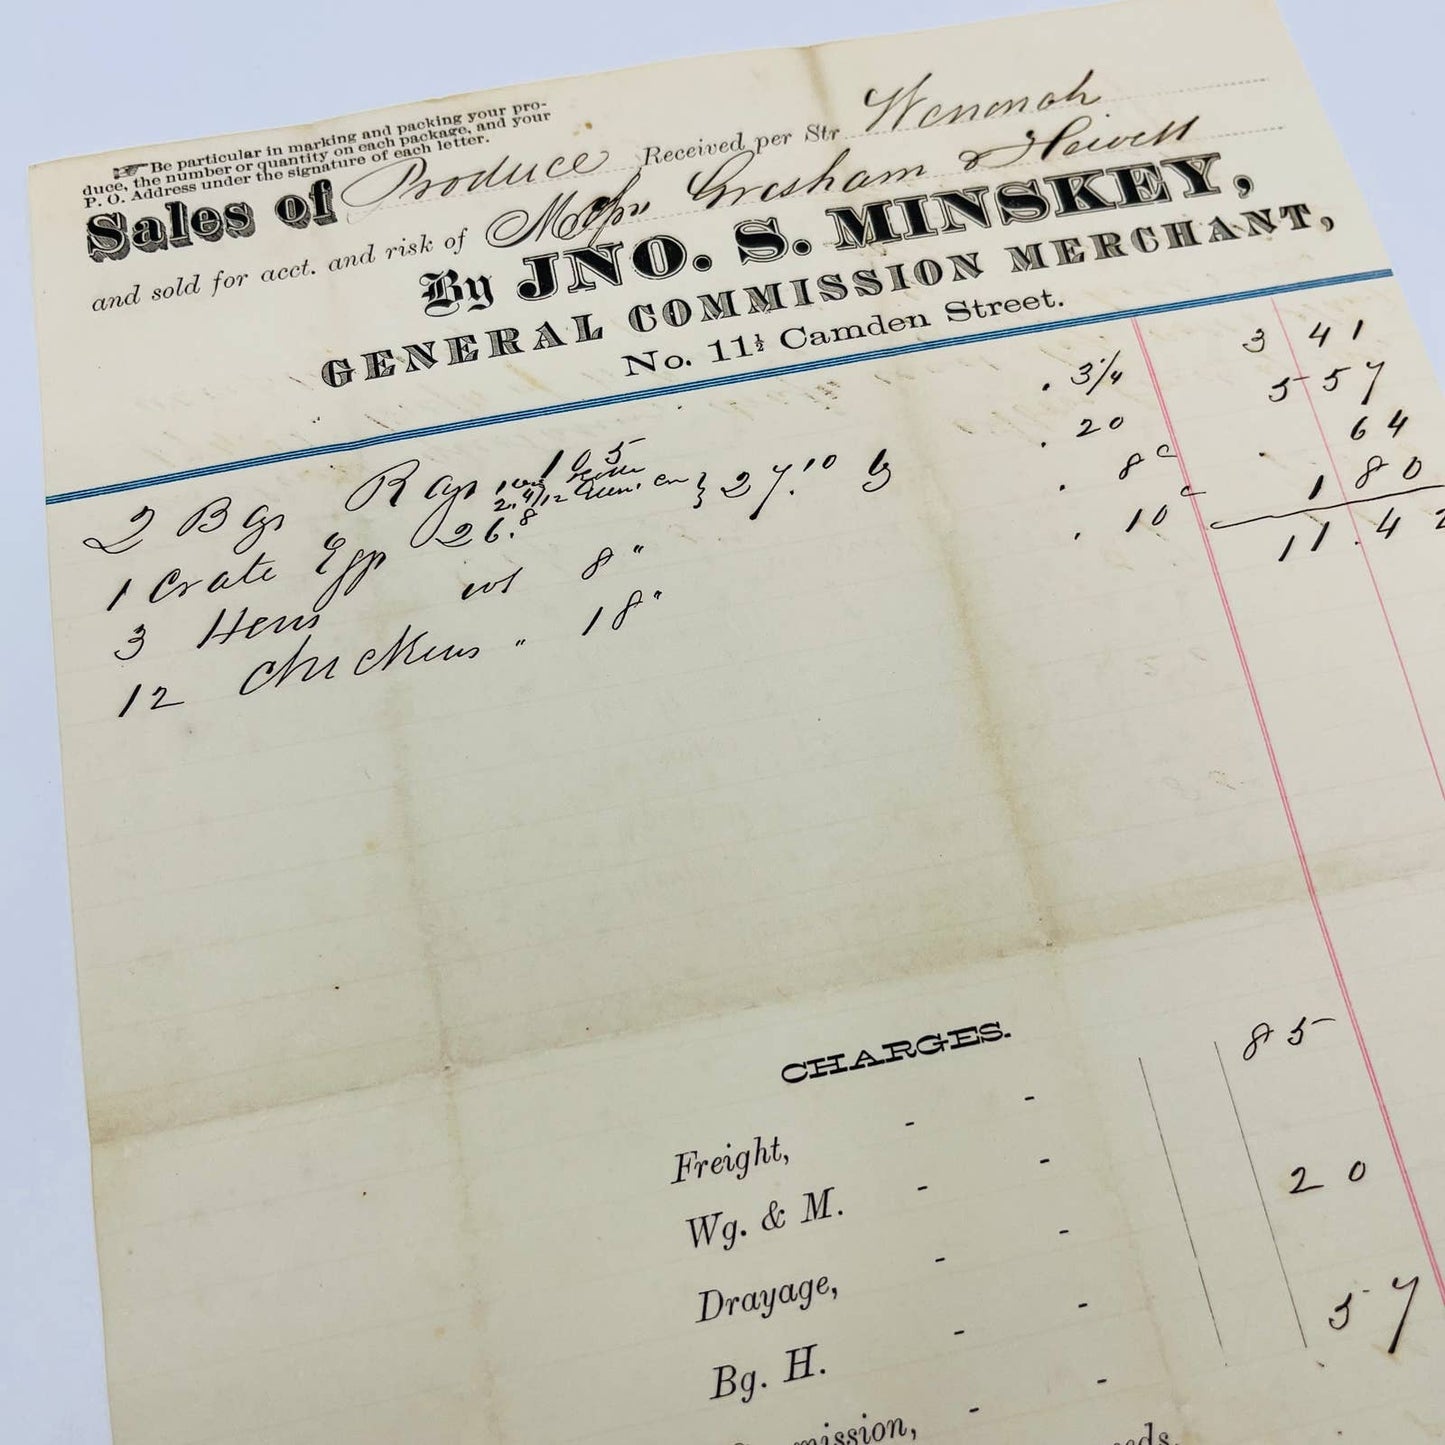 Be particular in marking and packing your pro-
duce, the number or quantity on each package, and your
P. O. Address under the signature of each letter.
Sales of Produce Received per Str Wenonah
and sold for acct. and risk of Gresham & Hewett
By JNO. S. MINSKEY,
GENERAL COMMISSION MERCHANT,
No. 11½ Camden Street.
2 Bgs Rags 105 . 3¼ 3 41
1 Crate Eggs 26.8 } 27.10 . 20 5 57
3 Hens wt 8 " . 8c 64
12 Chickens " 18 " . 10c 1 80
11.42
CHARGES.
Freight, - - 85
Wg. & M. - -
Drayage, - - 20
Bg. H. - -
mission, - - 57
eds.